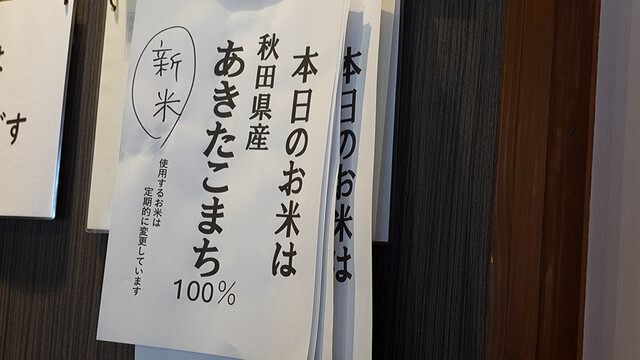 本日のお米は
秋田県産
あきたこまち
100%
新米
使用するお米は
定期的に変更しています
本日のお米は
です